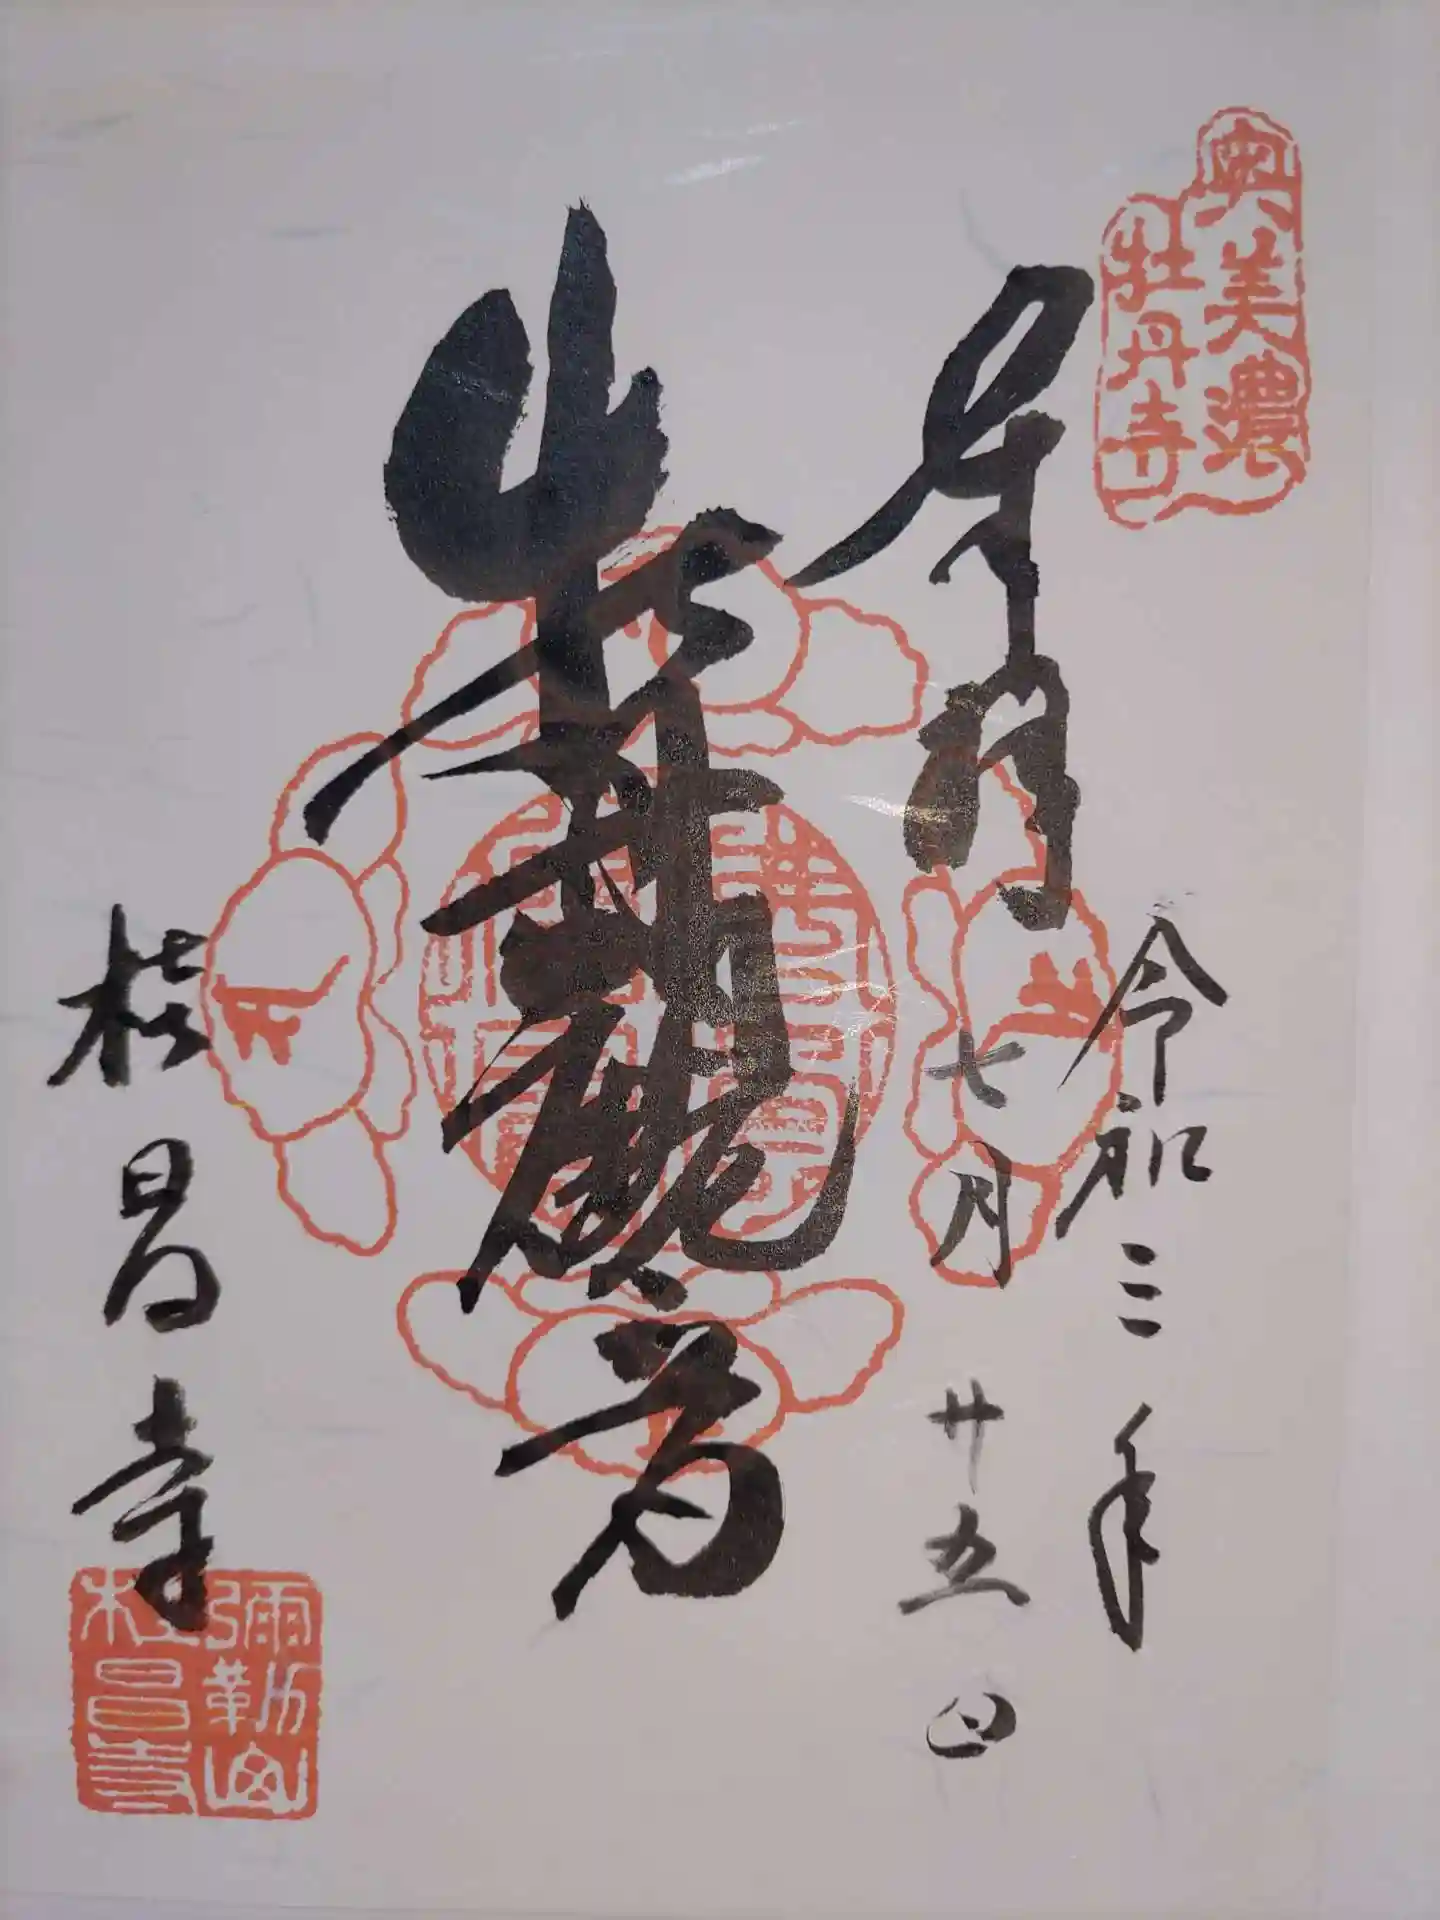 奥美濃
牡丹寺
奉拝
令和三年
七月廿五日
觀音
桂昌寺
彌勒山
桂昌寺